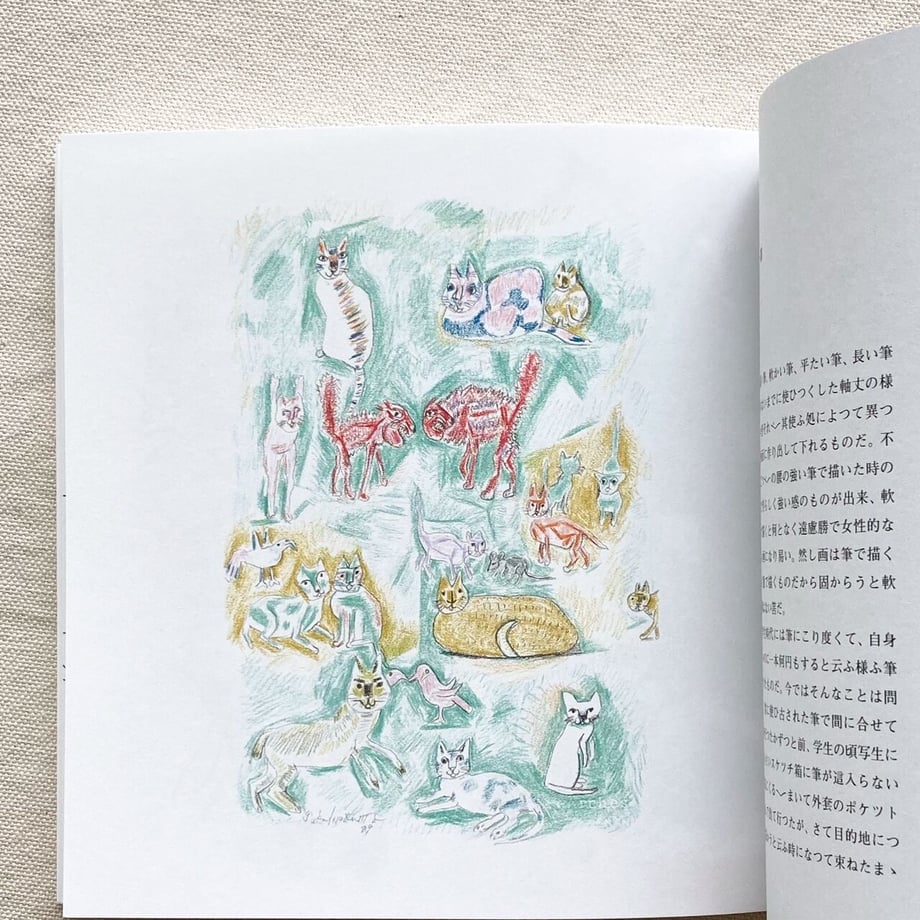 軟かい筆、平たい筆、長い筆
までに使ひつくした軸丈の様
其使ふ処によつて異つ
に作り出して下れるものだ。不
の腰の強い筆で描いた時の
らしく強い感のものが出来、軟
と何となく遠慮勝で女性的な
になり易い。然し画は筆で描く
で描くものだから固からうと軟
はない筈だ。
時代には筆にこり度くて、自身
に一本何円もすると云ふ様ふ筆
ものだ。今ではそんなことは問
に使ひ古された筆で間に合せて
かずつと前、学生の頃写生に
スケツチ箱に筆が這入らない
くる〱まいて外套のポケツト
て行つたが、さて目的地につ
うと云ふ時になつて束ねたまゝ